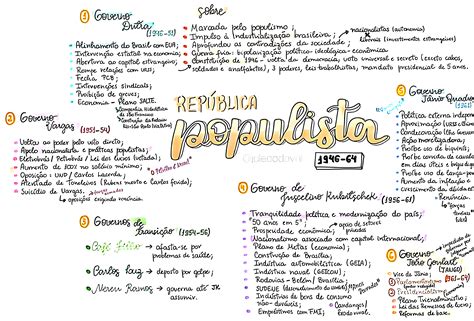 Sobre
Marcada pelo populismo
Impulso à industrialização brasileira
nacionalistas (autonomia)
liberais (investimentos estrangeiros)
Aprofundou as contradições da sociedade
Guerra fria: bipolarização político-ideológica-econômica
Constituição de 1946 - volta da democracia, voto universal e secreto (exceto cabos,
soldados e analfabetos), 3 poderes, leis trabalhistas, mandato presidencial de 5 anos.
① Governo
Dutra (1946-51)
Alinhamento do Brasil com EUA;
Intervenção estatal na economia;
Abertura ao capital estrangeiro;
Rompe relações com URSS;
Fecha PCB;
Intervenções sindicais;
Proibição de greves;
Economia - Plano SALTE.
REPÚBLICA
populista
1946-64
② Governo
Vargas (1951-54)
Voltou ao poder pelo voto direto;
Apoio nacionalista e práticas populistas;
Eletrobrás / Petrobrás / Lei dos Lucros (vetada);
"O Petróleo é Nosso"
Aumento de 100% no salário mínimo;
Oposição: UDN / Carlos Lacerda;
Atentado da Toneleiros
Suicídio de Vargas
oposições exigindo renúncia.
③ Governos de
transição (1954-56)
Café Filho → afasta-se por
problemas de
saúde.
Carlos Luz → deposto por golpe.
Nereu Ramos → governa até JK
assumir.
④ Governo de
Juscelino Kubitschek (1956-61)
Tranquilidade política e modernização do país;
"50 anos em 5";
Prosperidade econômica;
Nacionalismo associado com capital internacional;
Plano de Metas (economia);
Construção de Brasília;
Indústria automobilística (GEIA);
Indústria naval (GEICON);
Rodovias - Belém / Brasília;
SUDENE
Indústrias de bens de consumo
não-duráveis;
Empréstimos com FMI;
⑤ Governo
Jânio Quadros
(1961)
Política externa independente
Aproximação
Condecoração
Ação moralizadora;
Proíbe uso de biquínis
Proíbe corrida de cavalos
em dias úteis e briga de
Proíbe uso de lança-
Aumento da inflação
Crescimento da dívida
Renúncia.
"forças
⑥ Governo
João Goulart
(JANGO)
Vice de Jânio;
Parlamentarismo (1961-64)
Presidencialismo
Plano Trienal
Reformas de base.